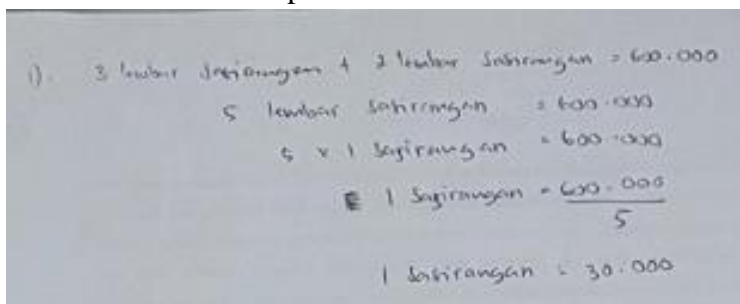 1). 3 lembar sasirangan + 2 lembar sasirangan = 600.000
5 lembar sasirangan = 600.000
5 x 1 sasirangan = 600.000
1 sasirangan = 600.000
5
1 sasirangan = 30.000